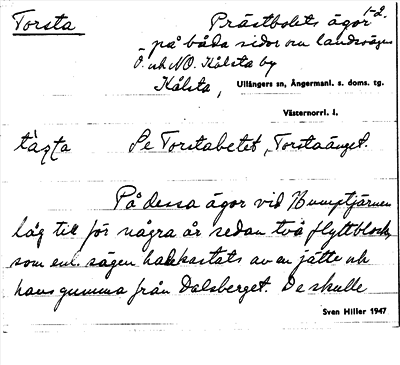 Torsta Prästbolets ägor 1-2.
på båda sidor om landsvägen
Ö. och NO. Kålsta by
Kålsta, Ullångers sn, Ångermanl. s. doms. tg.
Västernorrl. l.
tåṣṭa Se Torstabetet, Torstaänget.
På dessa ägor vid Humptjärnen
låg till för några år sedan två flyttblock,
som enl. sägen had kastats av en jätte och
hans gumma från Dalsberget. De skulle
Sven Hiller 1947